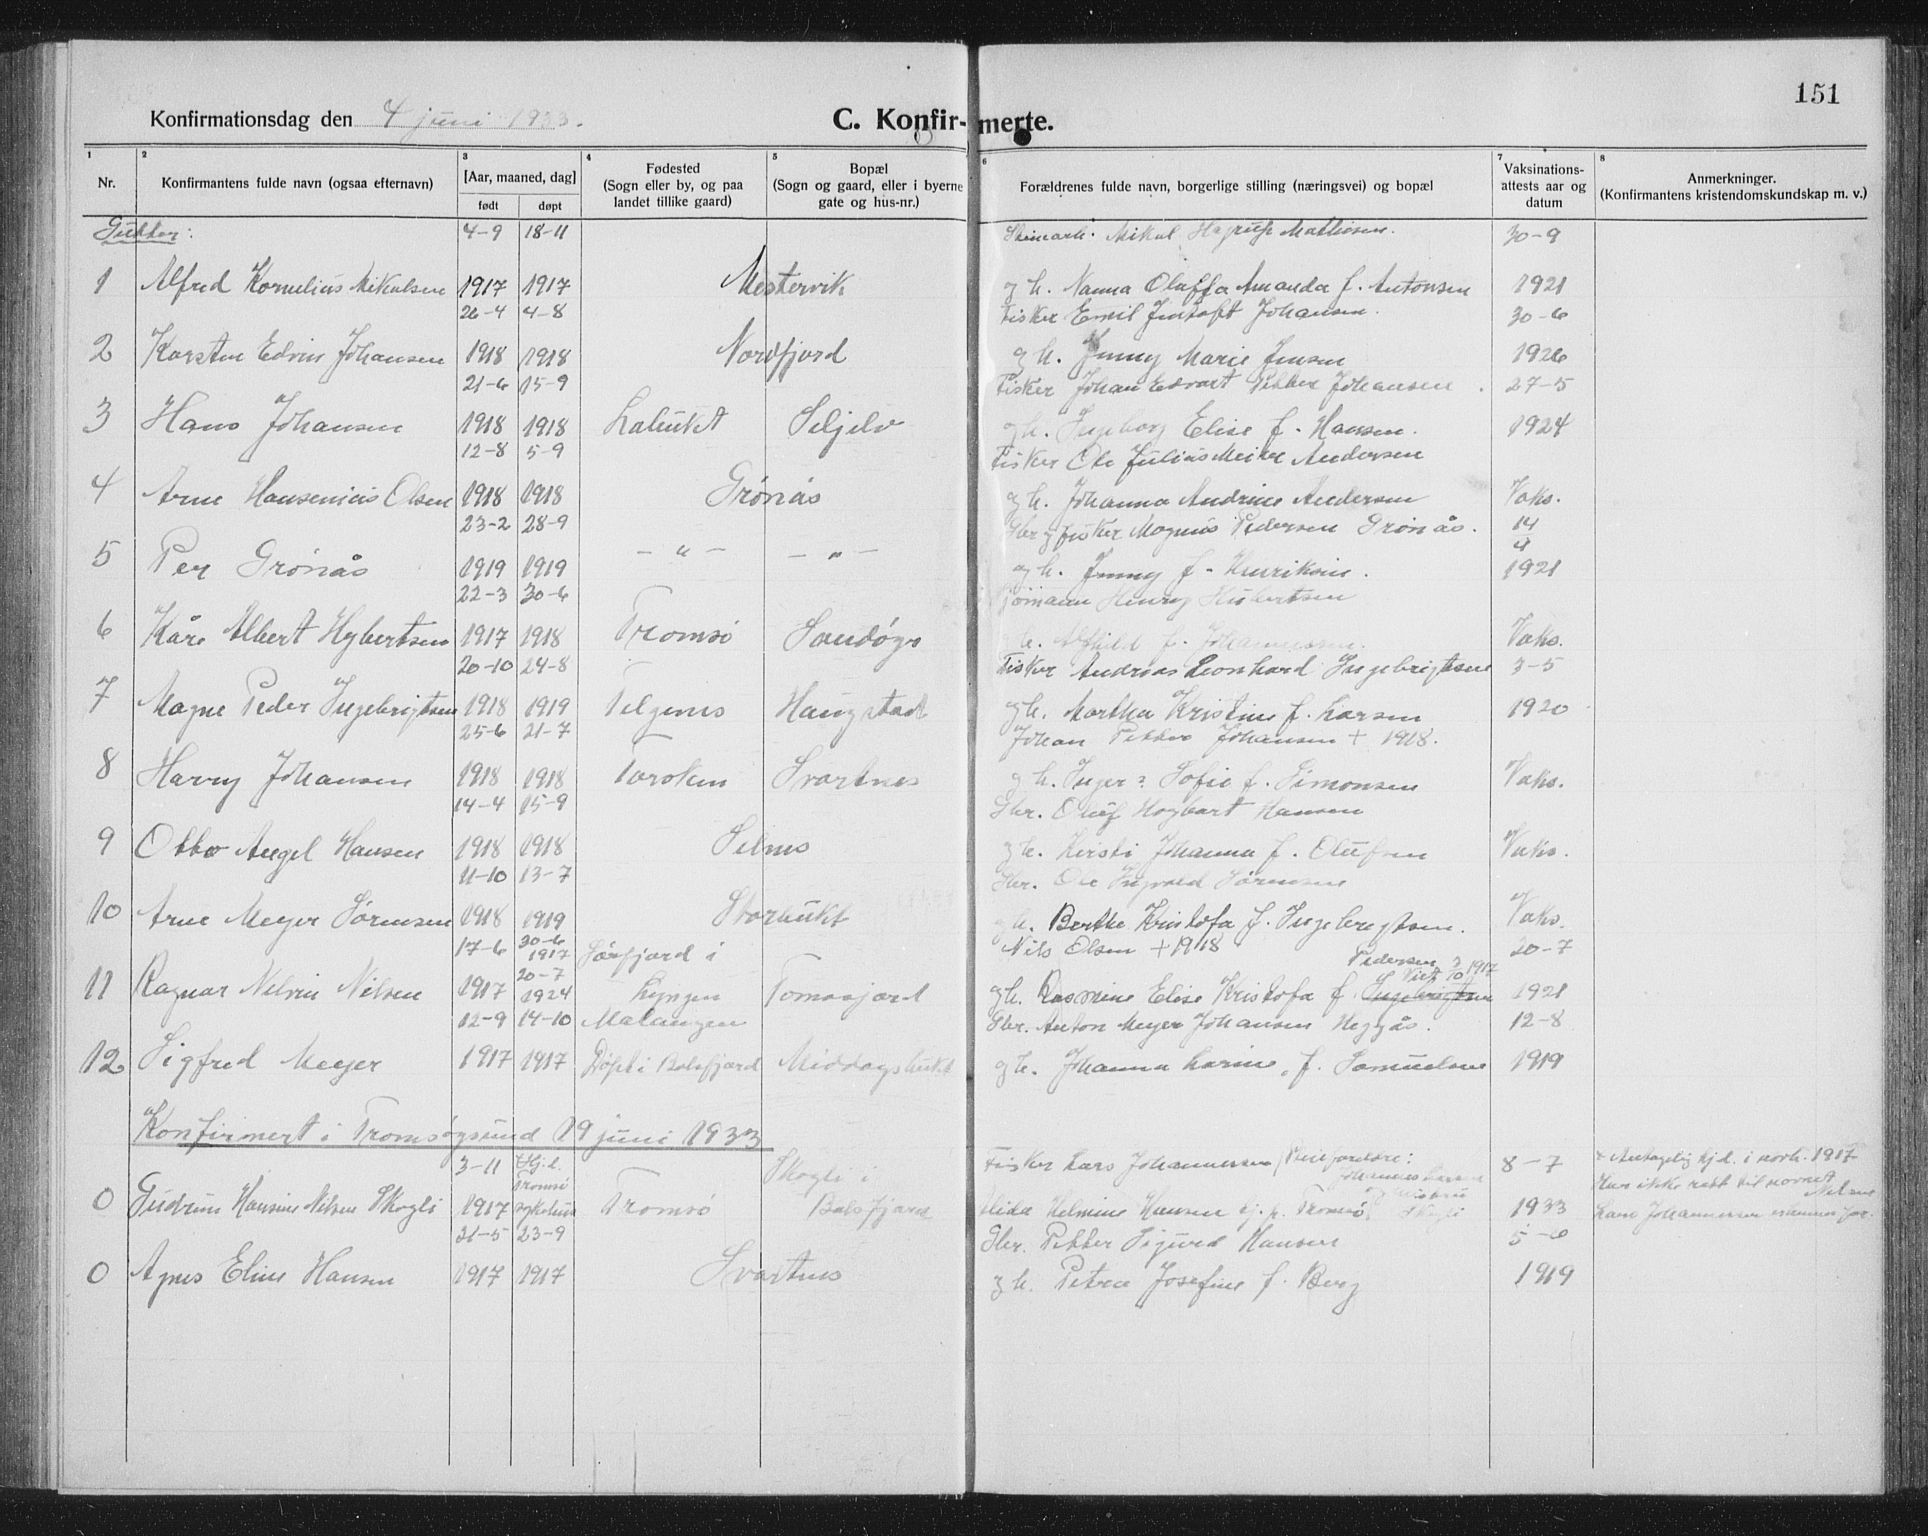 151
Konfirmationsdag den 4 juni 1933.
C. Konfir-merte.
1 2 3 4 5 6 7 8
Nr. Konfirmantens fulde navn (ogsaa efternavn) [Aar, maaned, dag] født døpt Fødested (Sogn eller by, og paa landet tillike gaard) Bopæl (Sogn og gaard, eller i byerne gate og hus-nr.) Forældrenes fulde navn, borgerlige stilling (næringsvei) og bopæl Vaksinations-attests aar og datum Anmerkninger. (Konfirmantens kristendomskundskap m. v.)
Gutter: 4-9 18-11 Mikal Hagrup Mathisen. 30-9
1 Alfred Kornelius Mikalsen 1917 1917 Mestervik og h. Nanna Oluffa Amanda f. Antonsen 1921
26-4 4-8 Fisker Emil Jentoft Johansen. 30-6
2 Karsten Edvin Johansen 1918 1918 Nordfjord og h. Jenny Marie Jensen 1926
21-6 15-9 Fisker Johan Edvart Petter Johansen. 27-5
3 Hans Johansen 1918 1918 Labukt Seljelv og h. Ingeborg Elise f. Hansen. 1924
12-8 5-9 Fisker Ole Julius Meier Andersen
4 Arne Hansenius Olsen 1918 1918 Grønås og h. Johanna Andrine Andersen Vaks.
23-2 28-9 Gbr og fisker Magnus Pedersen Grønås. 14
4
5 Per Grønås 1919 1919 - " - - " - og h. Jenny f. Henriksen. 1921
22-3 30-6 Sjømann Henry Hubertsen
6 Kåre Albert Hybertsen 1917 1918 Tromsø Sandøyr h. Alfhild f. Johannessen. Vaks.
20-10 24-8 Fisker Andreas Leonhard Ingebrigtsen 3-5
7 Magne Peder Ingebrigtsen 1918 1919 Selgenes Haugstad og h. Martha Kristine f. Larsen 1920
25-6 21-7 Johan Petter Johansen + 1918.
8 Harry Johansen 1918 1918 Torsken Svartnes og h. Inger? Sofie f. Simonsen Vaks.
14-4 15-9 Gbr. Oluf Hagbart Hansen
9 Otto Angel Hansen 1918 1918 Selnes og h. Kirsti Johanna f. Olufsen Vaks.
11-10 13-7 Gbr. Ole Ingvald Sørensen
10 Arne Meyer Sørensen 1918 1919 Storbukt og h. Berthe Kristofa f. Ingebregtsen. Vaks.
17-6 30-6 1917 Sørfjord i Nils Olsen + 1918 Pedersen 20-7
20-7 Viet 3/10 1917
11 Ragnar Nelvin Nilsen 1917 1924 Lyngen Tomasjord og h. Rasmine Elise Kristofa f. Ingebrigtsen 1921
12-9 14-10 Malangen Gbr. Anton Meyer Johansen Heggås. 12-8
12 Sigfred Meyer 1917 1917 Døpt i Balsfjord Middagsbukt og h. Johanna Larine, f. Samuelsen 1919
Konfirmert i Tromsøysund 19 juni 1933
3-11 Hj.d. Tromsø Skogli i Fisker Lars Johannessen Pleieforeldre: 8-7 Antagelig hj.d. i novb. 1917
Johannes Larsen Har ikke rett til navnet
og hustru Nilsen
0 Gudrun Hansine Nilsen Skogli 1917 sykehus Tromsø Balsfjord Alida Helmine Hansen Tromsø Skogli 1933 Lars Johannessen
21-5 23-9 Gbr. Petter Sigurd Hansen 5-6
0 Agnes Eline Hansen 1917 1917 Svartnes og h. Petra Josefine f. Berg 1919